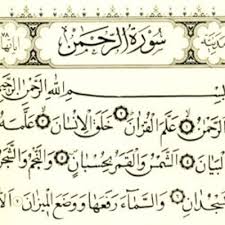 سُورَةُ الرَّحْمٰن
آياتها ٧٨
بِسْمِ اللهِ الرَّحْمٰنِ الرَّحِيمِ
الرَّحْمٰنُ ۝ عَلَّمَ الْقُرْآنَ ۝ خَلَقَ الْإِنْسَانَ ۝ عَلَّمَهُ
الْبَيَانَ ۝ الشَّمْسُ وَالْقَمَرُ بِحُسْبَانٍ ۝ وَالنَّجْمُ وَالشَّجَرُ
يَسْجُدَانِ ۝ وَالسَّمَاءَ رَفَعَهَا وَوَضَعَ الْمِيزَانَ ۝